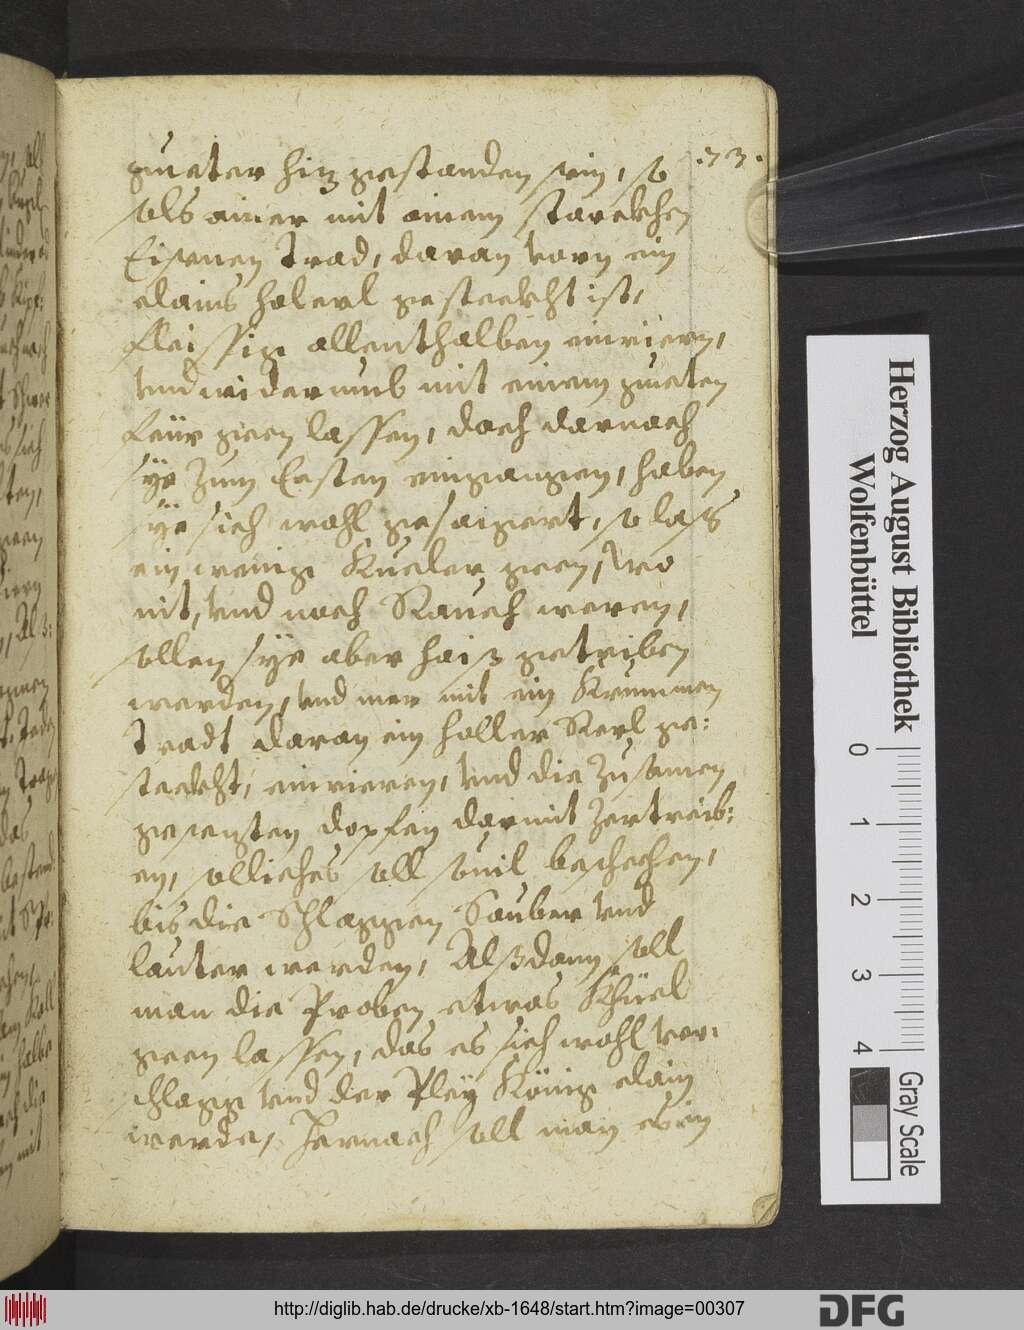 .73.
gueter hiz gestanden sein, so
sols ainer mit ainem starckhen
Eisenen Trad, daran vorn ein
clains holerl gesteckht ist,
fleissig allenthalben einrieren,
vnd widerumb mit einem gueten
feür geen lassen, doch darnach
sÿe zum Ersten eingangen, haben
sÿe sich wohl gesaigert, so lass
ein wenig Kueler geen, wo
nit, vnd noch Rauch weren,
sollen sÿe aber haiß getriben
werden, vnd mer mit ein Krummen
Tradt daran ein holler Kerl ge:
steckht, einrieren, vnd die Zusamen
gesenzten dopfen darmit Zertreib:
en, solliches soll souil beschechen,
bis die Schlaggen Sauber vnd
lauter werden, Alßdann soll
man die Proben etwas Khüel
geen lassen, das es sich wohl ver:
schlagg vnd der Pleÿ König clain
werde, Hernach soll man es in
Herzog August Bibliothek
Wolfenbüttel
0 1 2 3 4
Gray Scale
http://diglib.hab.de/drucke/xb-1648/start.htm?image=00307
DFG